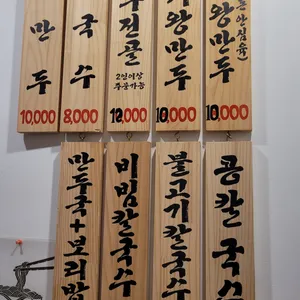 만두
10,000
국수
8,000
두전골
2인이상
주문가능
10,000
왕만두
10,000
왕만두
10,000
만두국+보리밥
비빔칼국수
불고기칼국수
콩칼국수